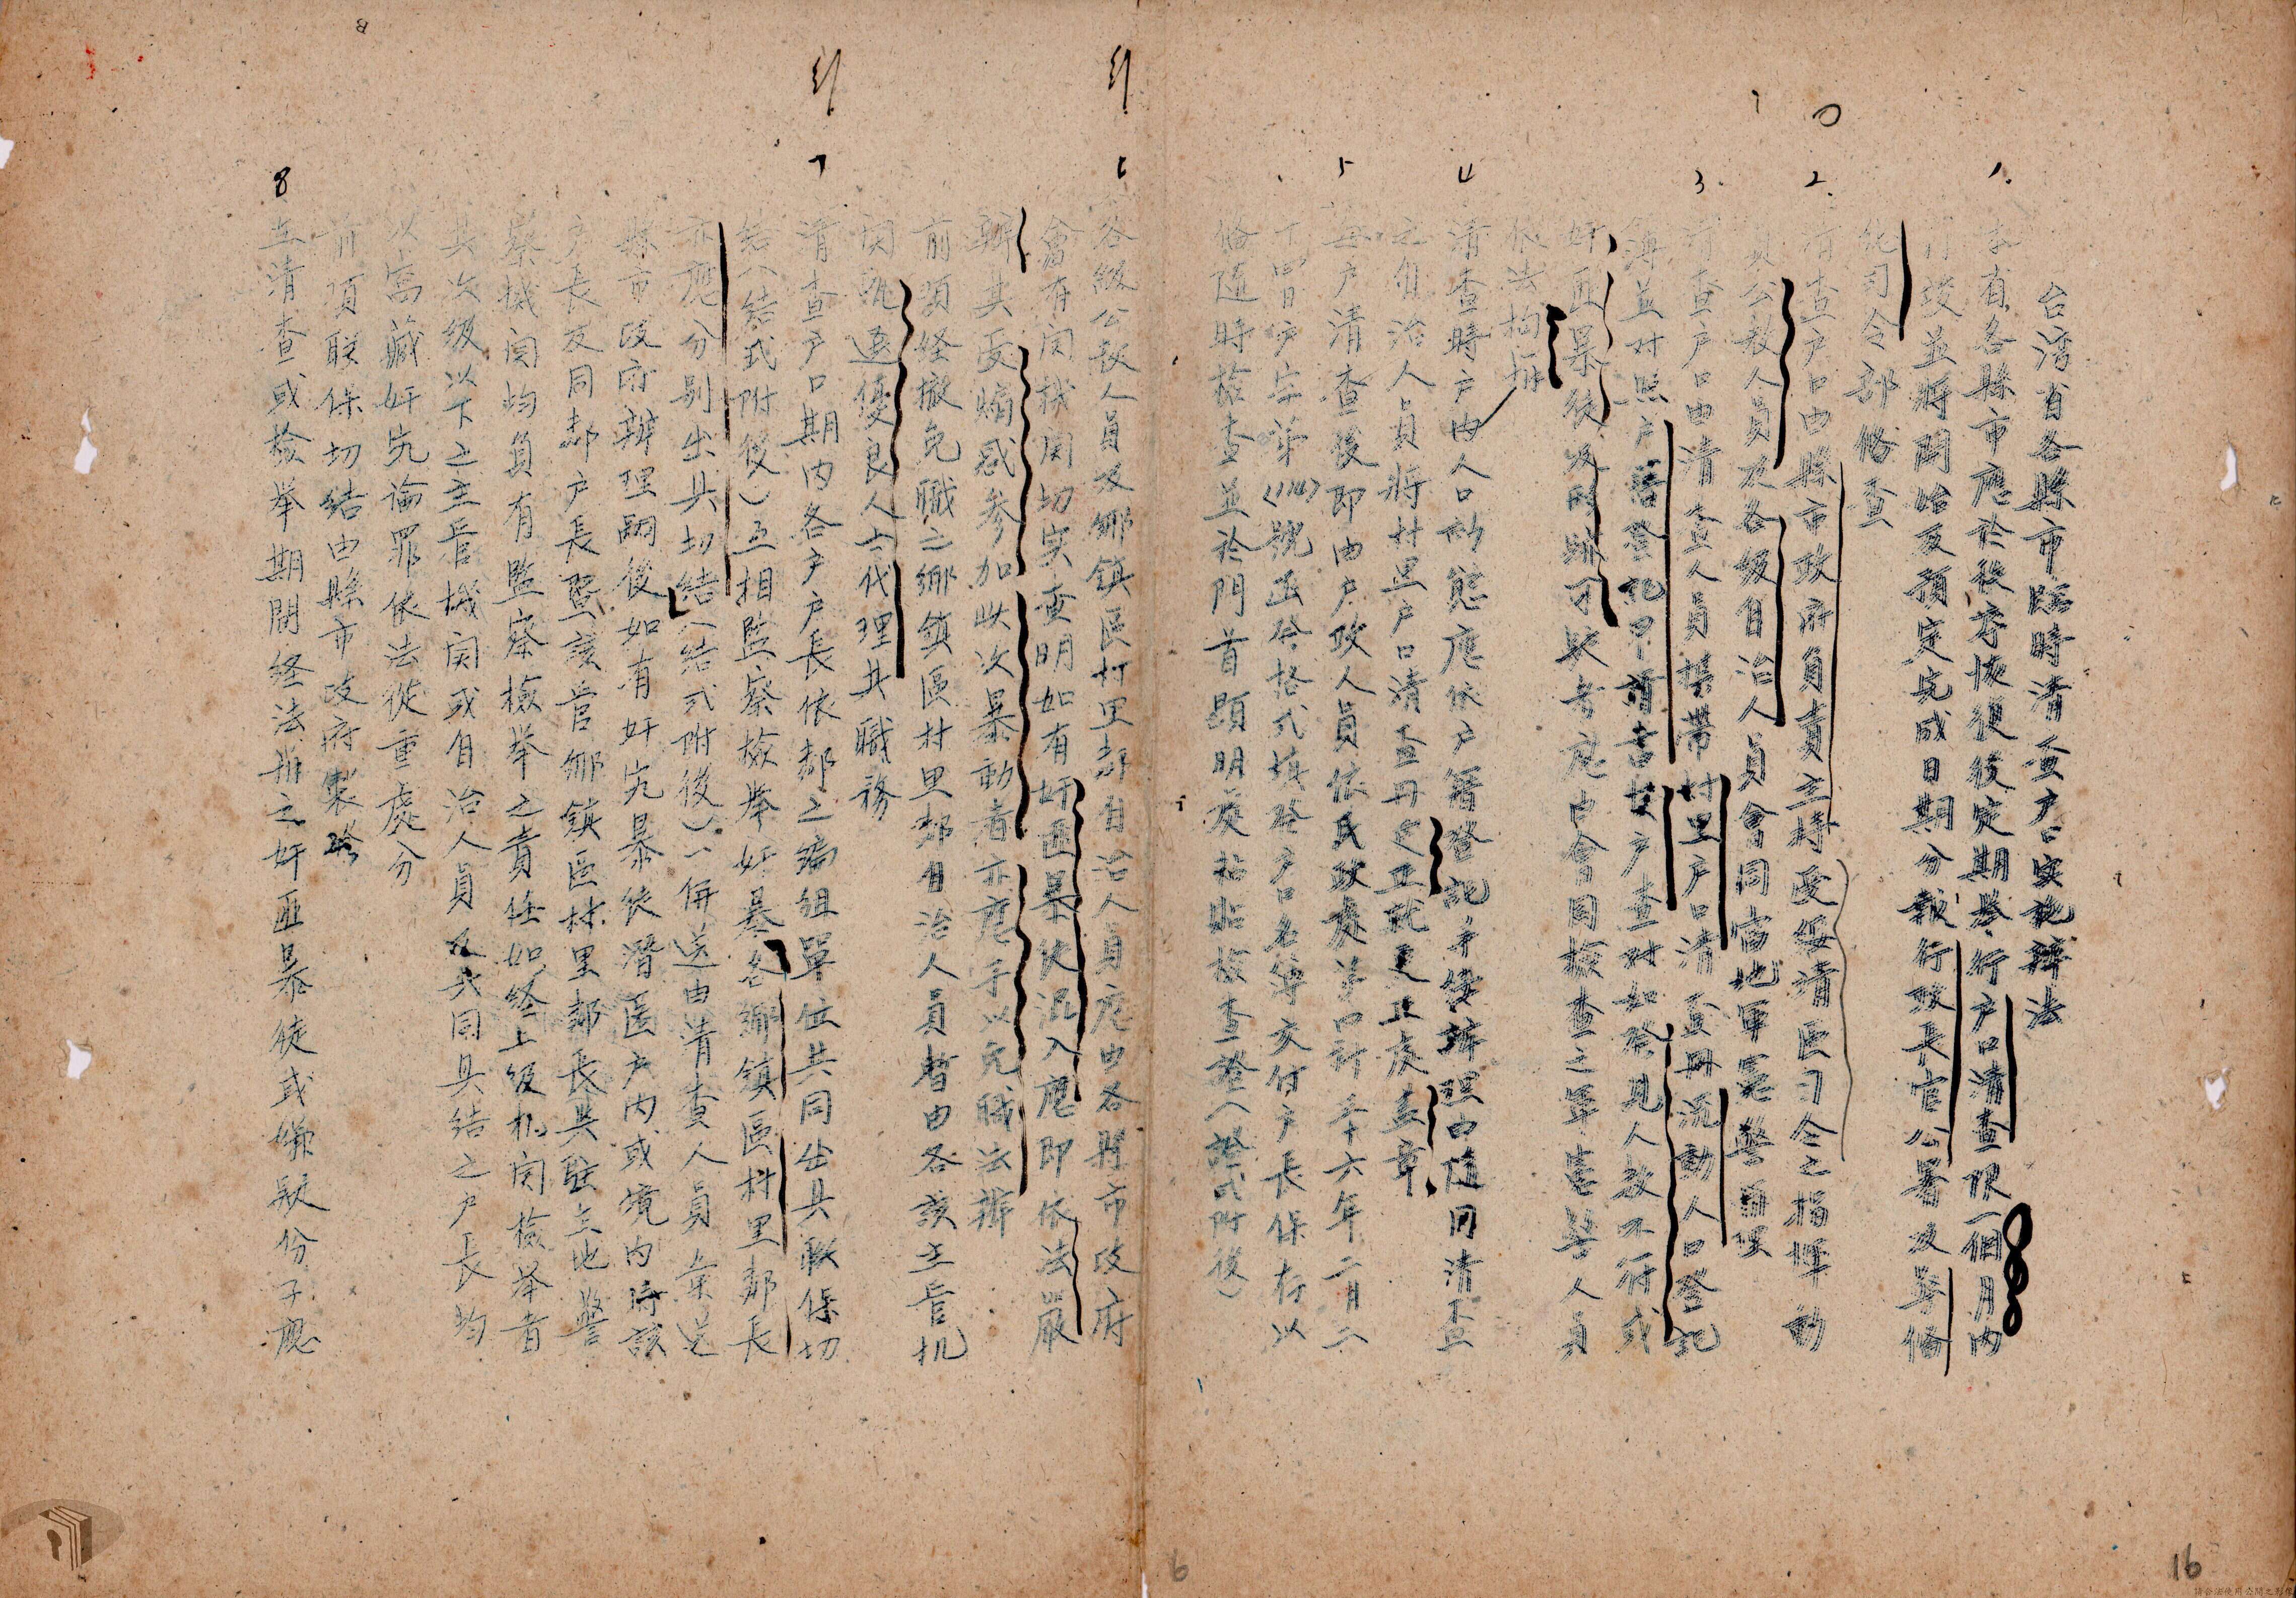 台湾省各縣市臨時清查户口实施辦法
1. 本省各縣市應於秩序恢復後定期举行户口清查限一個月内
竣並將開始及預定完成日期分報行政長官公署及警備
總司令部備查
2. 清查户口由縣市政府負責主持受綏清區司令之指揮動
員公教人員及各级自治人員會同當地軍憲警辦理
3. 清查户口由清查人員攜帶村里户口清查册流動人口登记
簿並对照户籍登记申請書按户查对如發見人数不符或
奸匪暴徒及形跡可疑者應由會同檢查之軍憲警人員
依法拘捕
4 清查時户内人口動態應依户籍登记手續辦理由隨同清查
之自治人員將村里户口清查册更正於更正處盖章
5 每户清查後即由户政人員依民政處第四科卅六年二月二
丁四日户字第(114)號函發格式填發户口名簿交付户長保存以
備隨時檢查並於門首顯明處粘貼檢查證(證式附後)
6 各級公教人員及鄉鎮區村里鄰自治人員應由各縣市政府
會有関機関切实查明如有奸匪暴徒混入應即依法嚴
辦其受煽惑参加此次暴動者亦應予以免職法辦
前項経撤免職之鄉鎮區村里鄰自治人員暫由各該主管机
関甄選優良人士代理其職務
7 清查户口期内各户户長依鄰之编組單位共同出具联保切
结(结式附後)互相監察檢举奸暴各鄉鎮區村里鄰長
亦應分别出具切结(结式附後)一併送由清查人員彙送
縣市政府辦理嗣後如有奸宄暴徒潛匿户内或境内時該
户長及同鄰户長暨該管鄉鎮區村里鄰長與駐在地警
察機関均負有監察檢举之責任如経上级机関檢举者
其次级以下之主管機関或自治人員及共同具结之户長均
以窩藏奸宄論罪依法從重處分
前項联保切结由縣市政府製發
8 在清查或檢举期間経法辦之奸匪暴徒或嫌疑份子應
16
6